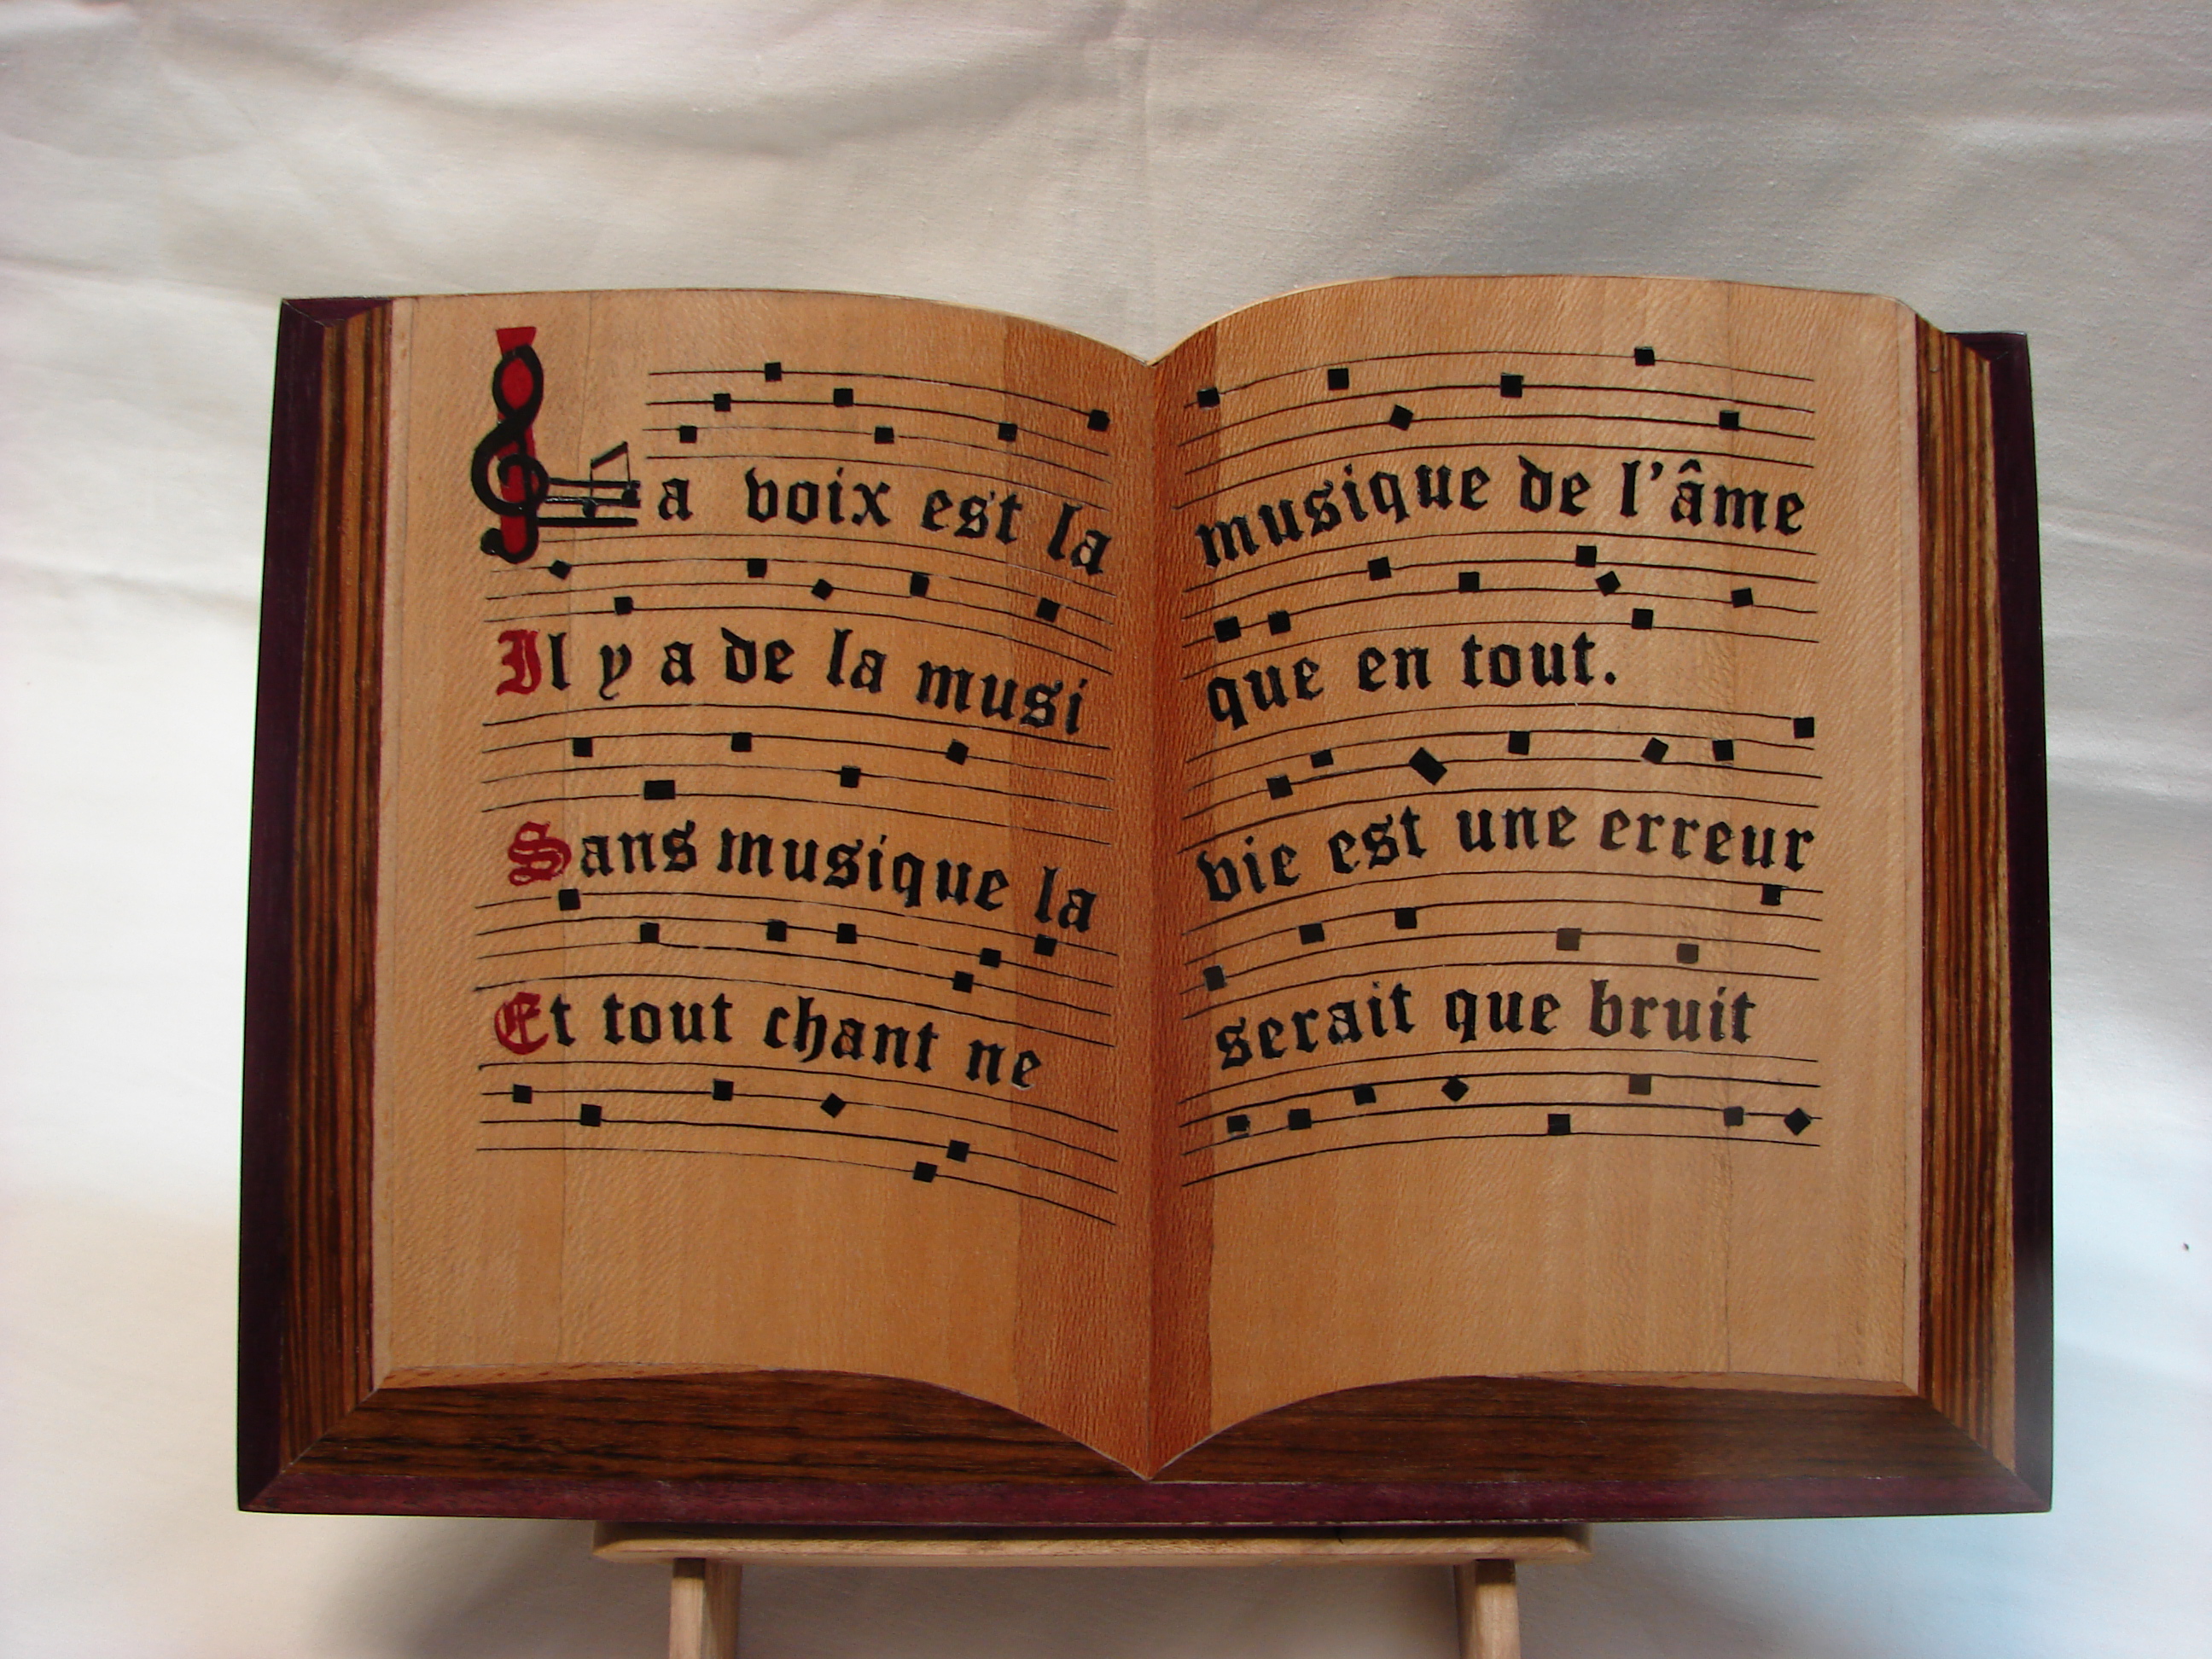 La voix est la musique de l'âme
Il y a de la musi que en tout.
Sans musique la vie est une erreur
Et tout chant ne serait que bruit